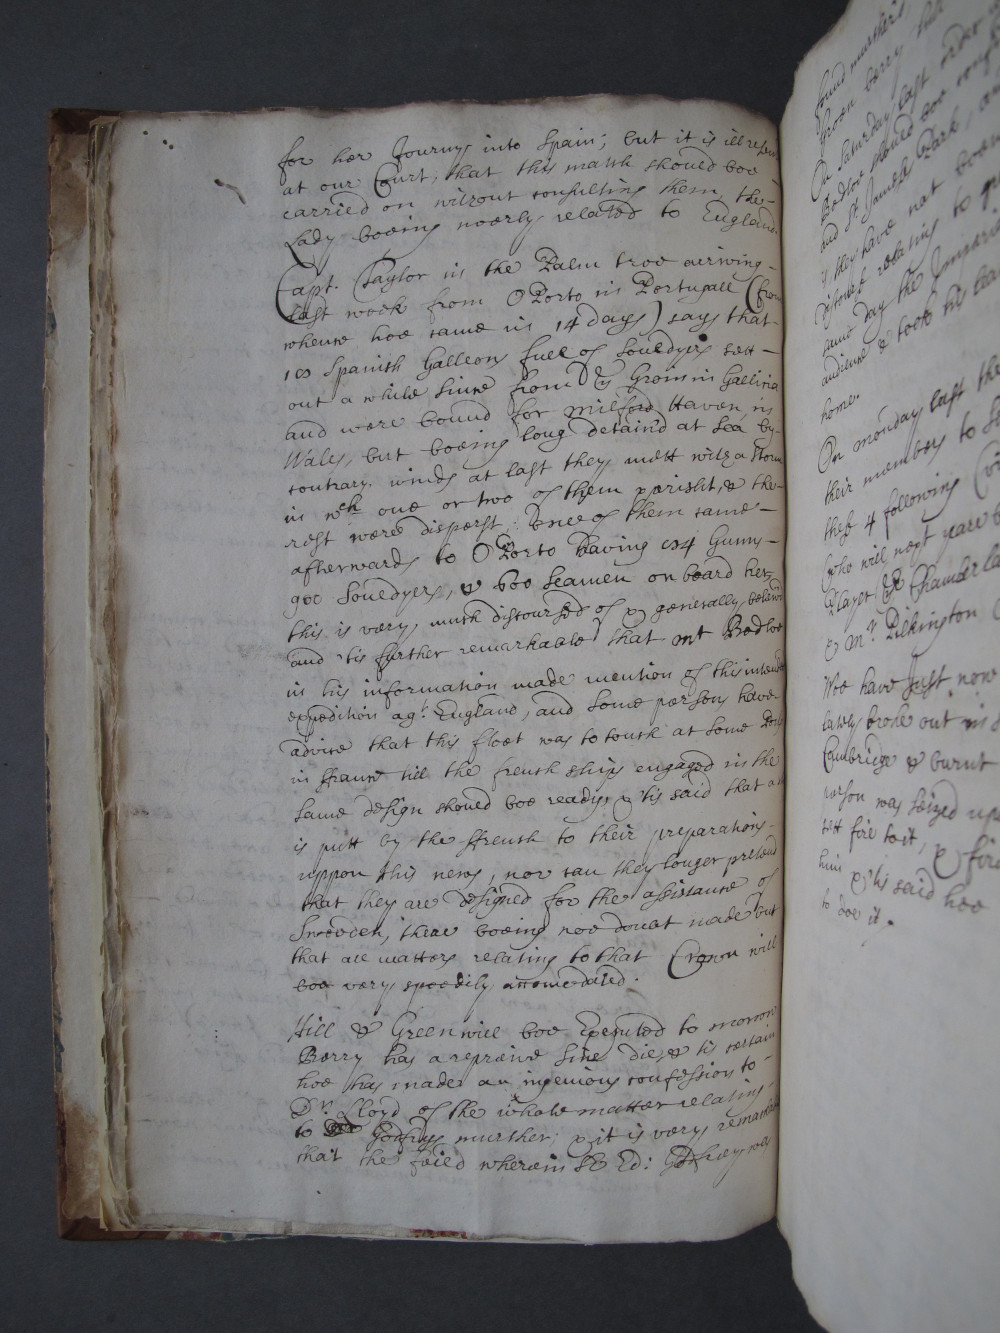 for her Journy into Spain; but it is ill resen
at our Court, that this match should bee
carried on without consulting them, the
Lady beeing neerly related to England
Capt. Taylor in the Palm tree arriving
last week from O Porto in Portugall (from
whence hee came in 14 days) says that
10 Spanish Galleons full of Souldyers sett
out a while since from ye Groin in Gallicia
and were bound for Milford Haven in
Wales, but beeing long detain'd at Sea by
contrary winds at last they mett with a storm
in wch one or two of them perisht, & the
rest were disperst, one of them came
afterwards to O Porto having 64 Gunns
900 Souldyers, & 600 Seamen on board her,
this is very much discoursed of & generally beleiv
and 'tis further remarkable that Mr Bedloe
in his information made mention of this intend
expedition agt England, and some persons have
advice that this fleet was to touch at some Ports
in ffrance till the french ships engaged in the
same design should bee ready, & 'tis said that a
is putt by the ffrench to their preparations
uppon this news, nor can they longer pretend
that they are designed for the assistance of
Sweeden, there beeing noe doubt made but
that all matters relating to that Crown will
bee very speedily accomodated.
Hill & Green will bee Executed to morrow
Berry has a repreive sine die, & tis certain
hee has made an ingenious confession to
Dr. Lloyd of the whole matter relating
to Godfreys murther, & it is very remarkab
that the feild wherein Sr Ed: Godfrey was
found murther'd
Green berry hill
On Saturday last order
Bedloe should bee
and St. James's Park,
if they have not been
discourse relating to
same day the Imperia
audience & took his lea
home.
On monday last the
their members to
these 4 following (
who will next yeare b
Player ye Chamberla
& Mr. Pilkington
Wee have just now
lately broke out in
Cambridge & burnt
person was seized up
sett fire to it, & fire
him & 'tis said hee
to doe it.